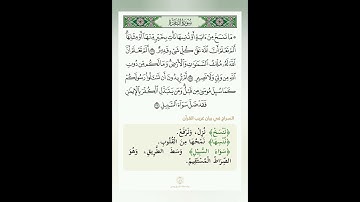 سُورَةُ البَقَرَةِ
۞ مَا نَنسَخْ مِنْ ءَايَةٍ أَوْ نُنسِهَا نَأْتِ بِخَيْرٍ مِّنْهَا أَوْ مِثْلِهَا
أَلَمْ تَعْلَمْ أَنَّ ٱللَّهَ عَلَىٰ كُلِّ شَىْءٍ قَدِيرٌ ۝ أَلَمْ تَعْلَمْ أَنَّ
ٱللَّهَ لَهُۥ مُلْكُ ٱلسَّمَٰوَٰتِ وَٱلْأَرْضِ وَمَا لَكُم مِّن دُونِ
ٱللَّهِ مِن وَلِىٍّ وَلَا نَصِيرٍ ۝ أَمْ تُرِيدُونَ أَن تَسْـَٔلُوا۟ رَسُولَكُمْ
كَمَا سُئِلَ مُوسَىٰ مِن قَبْلُ وَمَن يَتَبَدَّلِ ٱلْكُفْرَ بِٱلْإِيمَٰنِ
فَقَدْ ضَلَّ سَوَآءَ ٱلسَّبِيلِ ۝
السراج في بيان غريب القرآن
﴿نَنسَخْ﴾ نُزِلْ، وَنَرْفَعْ.
﴿نُنسِهَا﴾ نَمْحُهَا مِنَ الْقُلُوبِ.
﴿سَوَاءَ السَّبِيلِ﴾ وَسَطَ الطَّرِيقِ، وَهُوَ
الصِّرَاطُ الْمُسْتَقِيمُ.